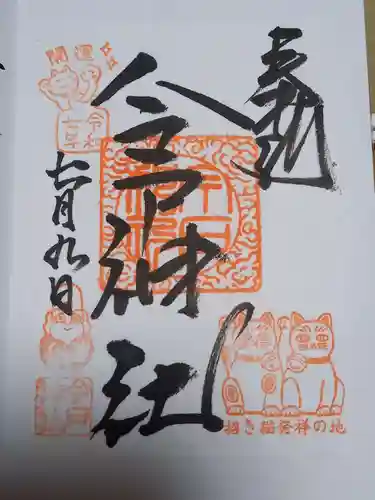 奉拝
今戸神社
開運
令和
七月九日
招き猫発祥の地